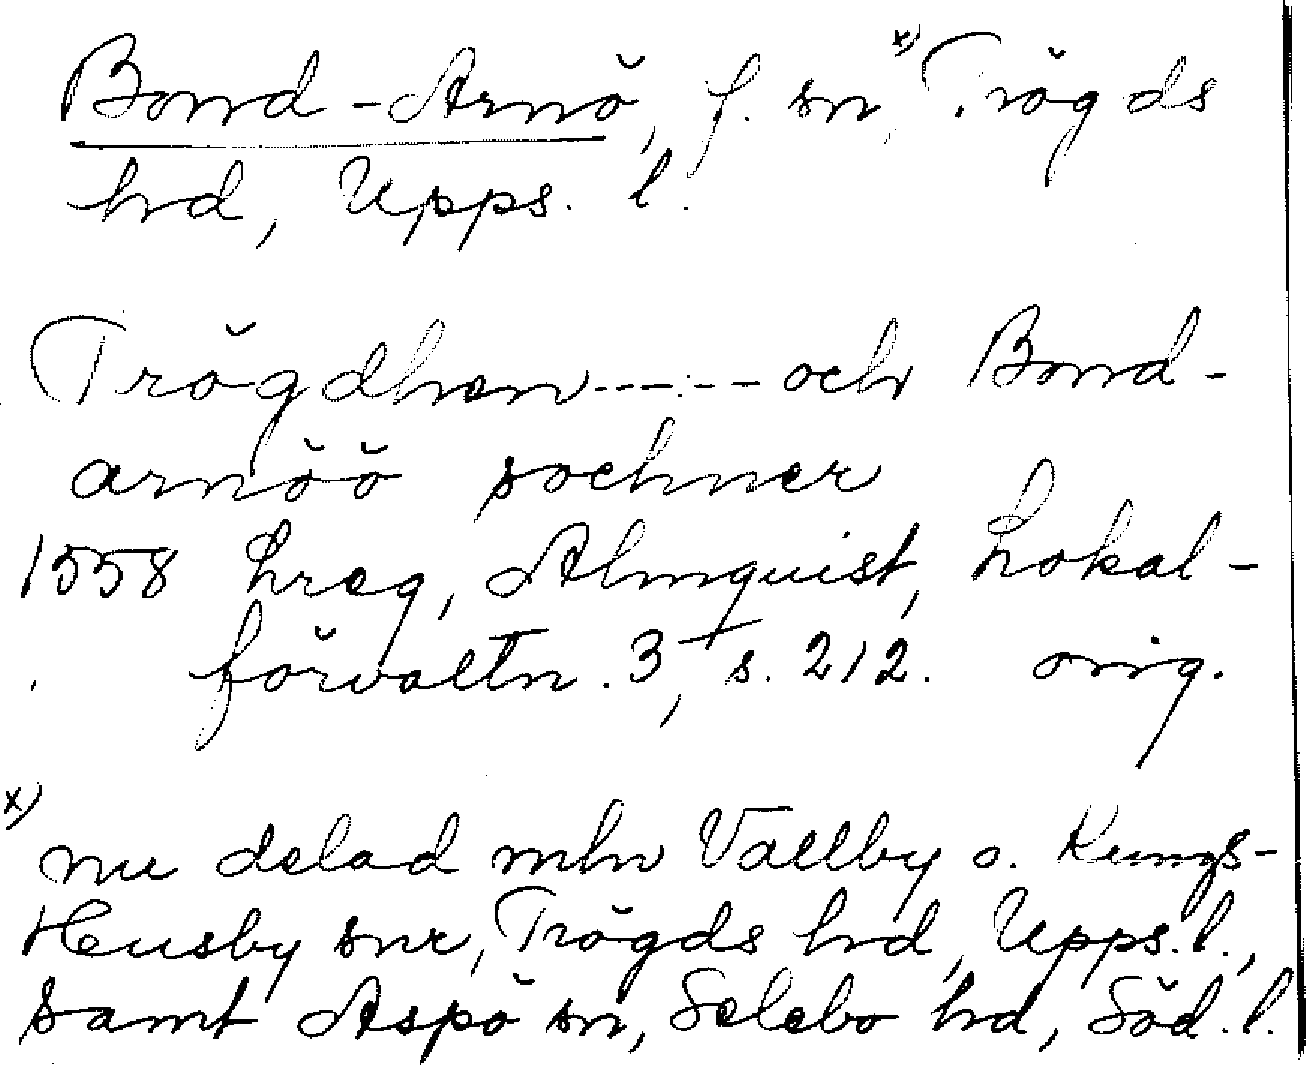 Bond-Arnö, f. sn x), Trögds
hrd, Upps. l.
Trögdhen------och Bond-
arnöö sochner
1558 hreg, Almquist, Lokal-
förvaltn. 3, s. 212. orig.
x)
nu delad mln Vallby o. Kungs-
Husby snr, Trögds hrd, Upps. l.,
samt Aspö sn, Selebo hrd, Söd. l.